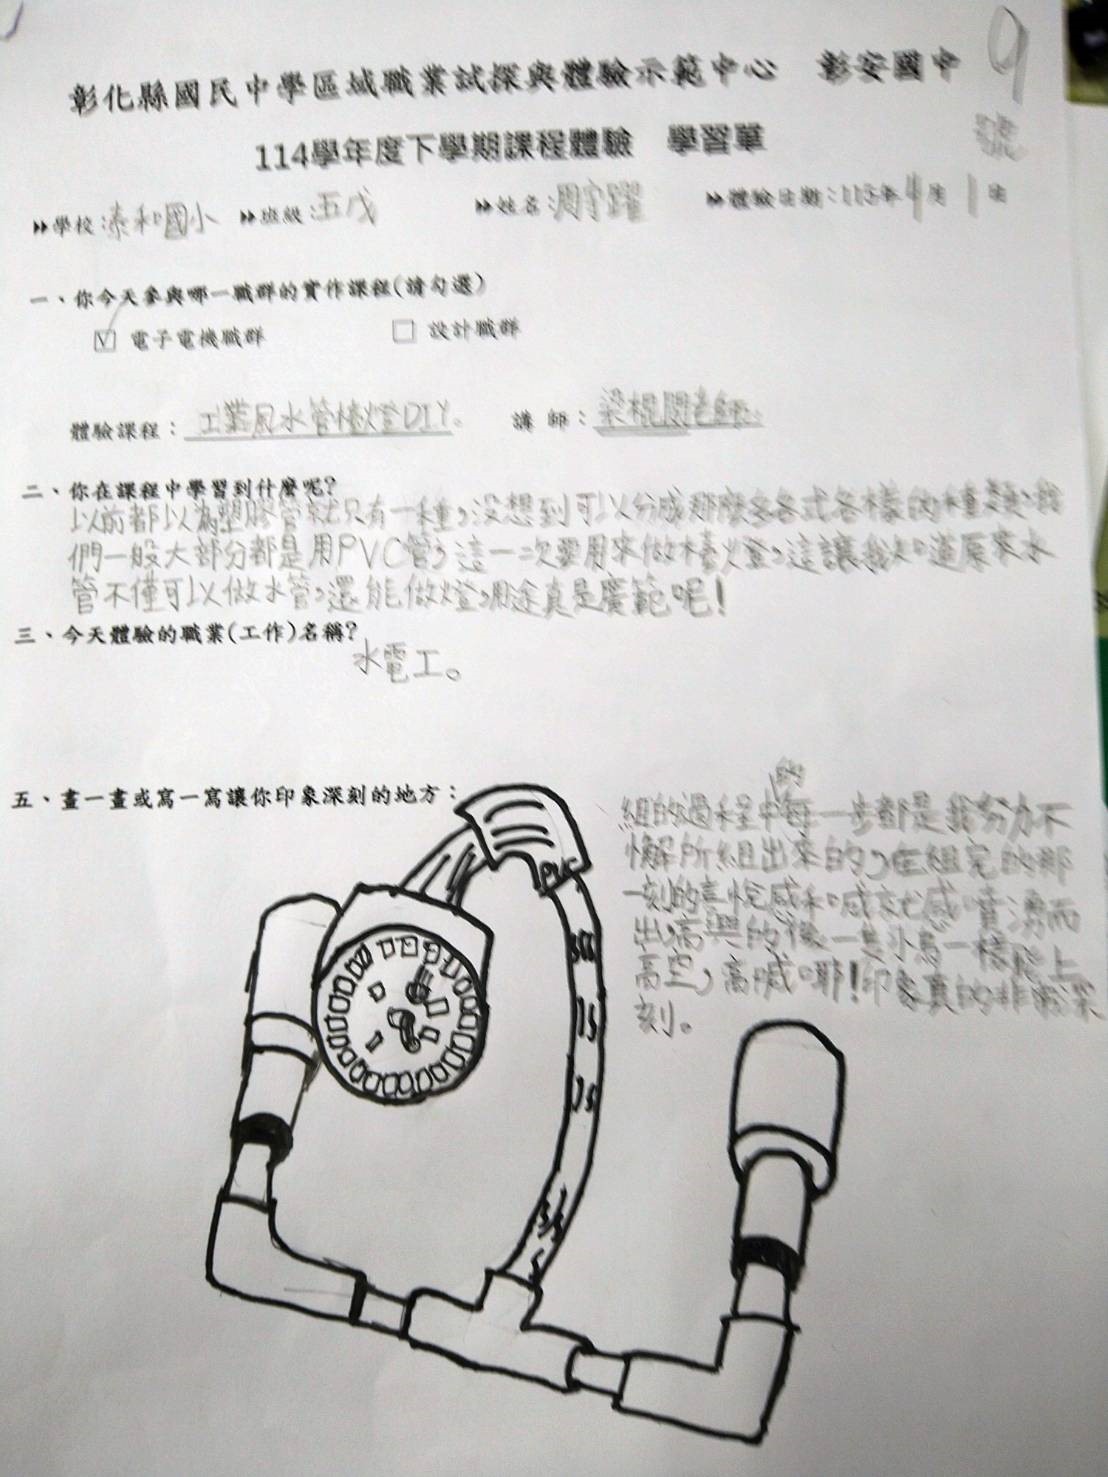 彰化縣國民中學區域職業試探與體驗示範中心　彰安國中
9
號
114學年度下學期課程體驗　學習單
▸▸學校:泰和國小 ▸▸班級:五戊 ▸▸姓名:周宇躍 ▸▸體驗日期:115年4月1日
一、你今天參與哪一職群的實作課程(請勾選)
☑ 電子電機職群 □ 設計職群
體驗課程：工業風水管檯燈DIY。 講師：梁棍閔老師。
二、你在課程中學習到什麼呢?
以前都以為塑膠管就只有一種，沒想到可以分成那麼多各式各樣的種類，我
們一般大部分都是用PVC管，這一次要用來做檯燈，這讓我知道原來水
管不僅可以做水管，還能做燈，用途真是廣範呢！
三、今天體驗的職業(工作)名稱?
水電工。
五、畫一畫或寫一寫讓你印象深刻的地方：
組的過程中的每一步都是我努力不
懈所組出來的，在組完的那
一刻的喜悅感和成就感噴湧而
出，高興的像一隻小鳥一樣飛上
高空，高喊耶！印象真的非常深
刻。
PVC